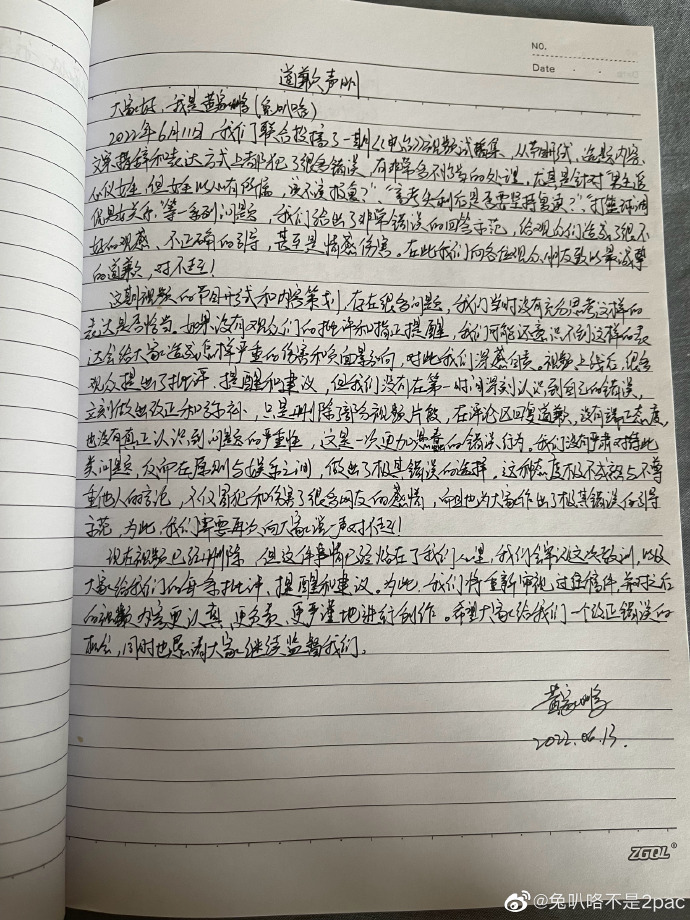 NO.
Date
道歉声明
大家好，我是黄家鹏(兔叭咯)
2022年6月11日，我们联合投稿了一期《中台》视频试题集，从节目形式、选题内容、
文案措辞和表达方式上都犯了很多错误，有非常多不恰当的处理。尤其是针对“男生送
女生，但女生以有所偿，该不该报复？”、“高考失利后是否要坚持复读？”、
等一系列问题，我们给出了非常错误的回答示范，给观众们造成了很不
好的观感、不正确的引导，甚至是情感伤害。在此我们向各位观众朋友致以最诚挚
的道歉，对不起！
这期视频的节目形式和内容策划，存在很多问题，我们当时没有充分思考这样的
表达是否恰当。如果没有观众们的批评和指正提醒，我们可能还意识不到这样的表
达会给大家造成怎样严重的伤害和负面影响，对此我们深感自责。视频上线后，很多
观众提出了批评、提醒和建议，但我们没有在第一时间深刻认识到自己的错误，
立刻做出改正和弥补，只是删除了部分视频片段，在评论区回复道歉，没有端正态度，
也没有真正认识到问题的严重性，这是一次更加愚蠢的错误行为。我们没有严肃对待此
类问题，反而在原则与娱乐之间，做出了极其错误的选择。这种态度极不成熟与不尊
重他人的言论，不仅冒犯和伤害了很多网友的感情，而且也为大家作出了极其错误的引导
示范，为此，我们需要再次向大家说一声对不起！
现在视频已经删除，但这件事情已经烙在了我们心里，我们会牢记这次教训，以及
大家给我们的每条批评、提醒和建议。为此，我们将重新审视过往稿件，并对之后
的视频内容更认真、更负责、更严谨地进行创作。希望大家给我们一个改正错误的
机会，同时也恳请大家继续监督我们。
黄家鹏
2022.06.13.
ZGQL®
@兔叭咯不是2pac